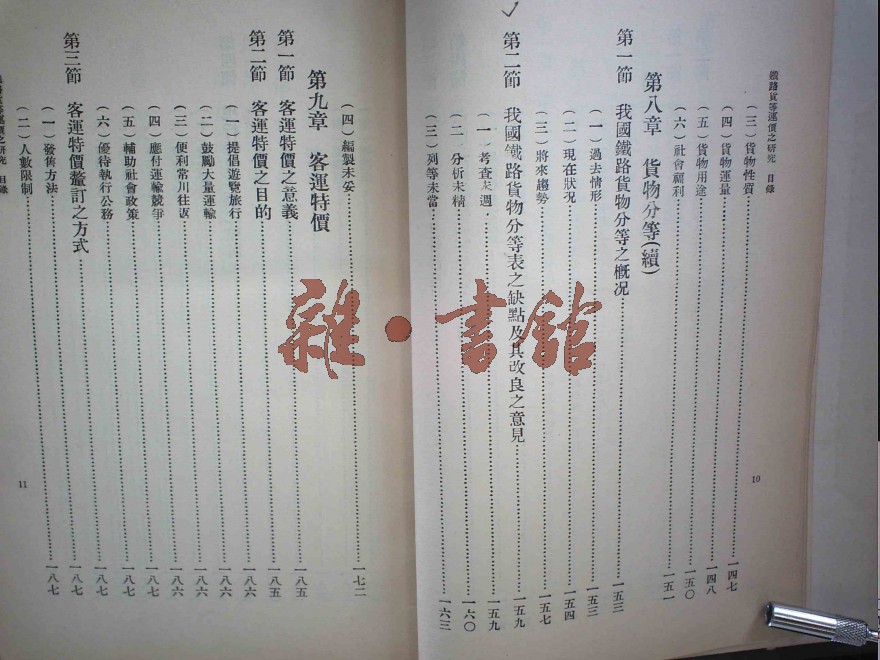 鐵路貨等運價之研究　目錄
（三）貨物性質……一四七
（四）貨物運量……一四八
（五）貨物用途……一五〇
（六）社會福利……一五一
第八章　貨物分等（續）
第一節　我國鐵路貨物分等之概況……一五三
（一）過去情形……一五三
（二）現在狀況……一五四
（三）將來趨勢……一五七
第二節　我國鐵路貨物分等表之缺點及其改良之意見……一五九
（一）考查未週……一五九
（二）分析未精……一六〇
（三）列等未當……一六三
10
（四）編製未妥……一七二
第九章　客運特價
第一節　客運特價之意義……一八五
第二節　客運特價之目的……一八五
（一）提倡遊覽旅行……一八六
（二）鼓勵大量運輸……一八六
（三）便利常川往返……一八六
（四）應付運輸競爭……一八七
（五）輔助社會政策……一八七
（六）優待執行公務……一八七
第三節　客運特價釐訂之方式
（一）發售方法……一八七
（二）人數限制……一八七
11
雜·書館